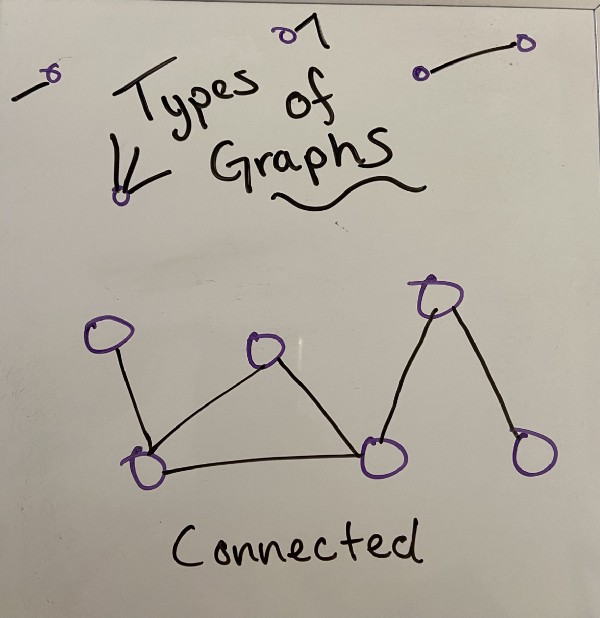 Types of
Graphs
Connected